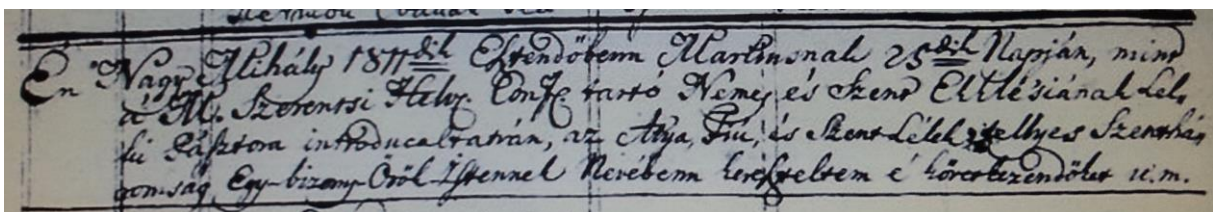 Én Nagy Mihály 1811dik Esztendőbenn Martiusnak 25dik Napján, mint
á M. Szerentsi Helv. Conf. tartó Nemes és Szent Ekklésiának Lel-
ki Pásztora introducaltatván, az Atya, Fiú, és Szent Lélek tellyes Szenthá-
romság Egy-bizony Örök Istennek Nevébenn kereszteltem é következendőket u.m.